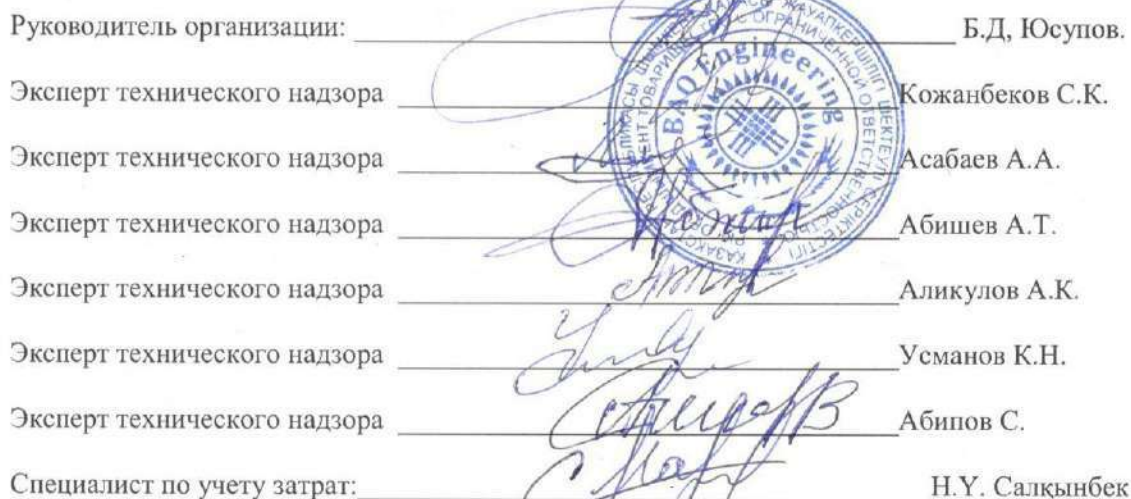 Руководитель организации: Б.Д, Юсупов.
Эксперт технического надзора Кожанбеков С.К.
Эксперт технического надзора Асабаев А.А.
Эксперт технического надзора Абишев А.Т.
Эксперт технического надзора Аликулов А.К.
Эксперт технического надзора Усманов К.Н.
Эксперт технического надзора Абипов С.
Специалист по учету затрат: Н.Ү. Салқынбек
BAQ Engineering
ЖАУАПКЕРШІЛІГІ ШЕКТЕУЛІ СЕРІКТЕСТІГІ
С ОГРАНИЧЕННОЙ ОТВЕТСТВЕННОСТЬЮ